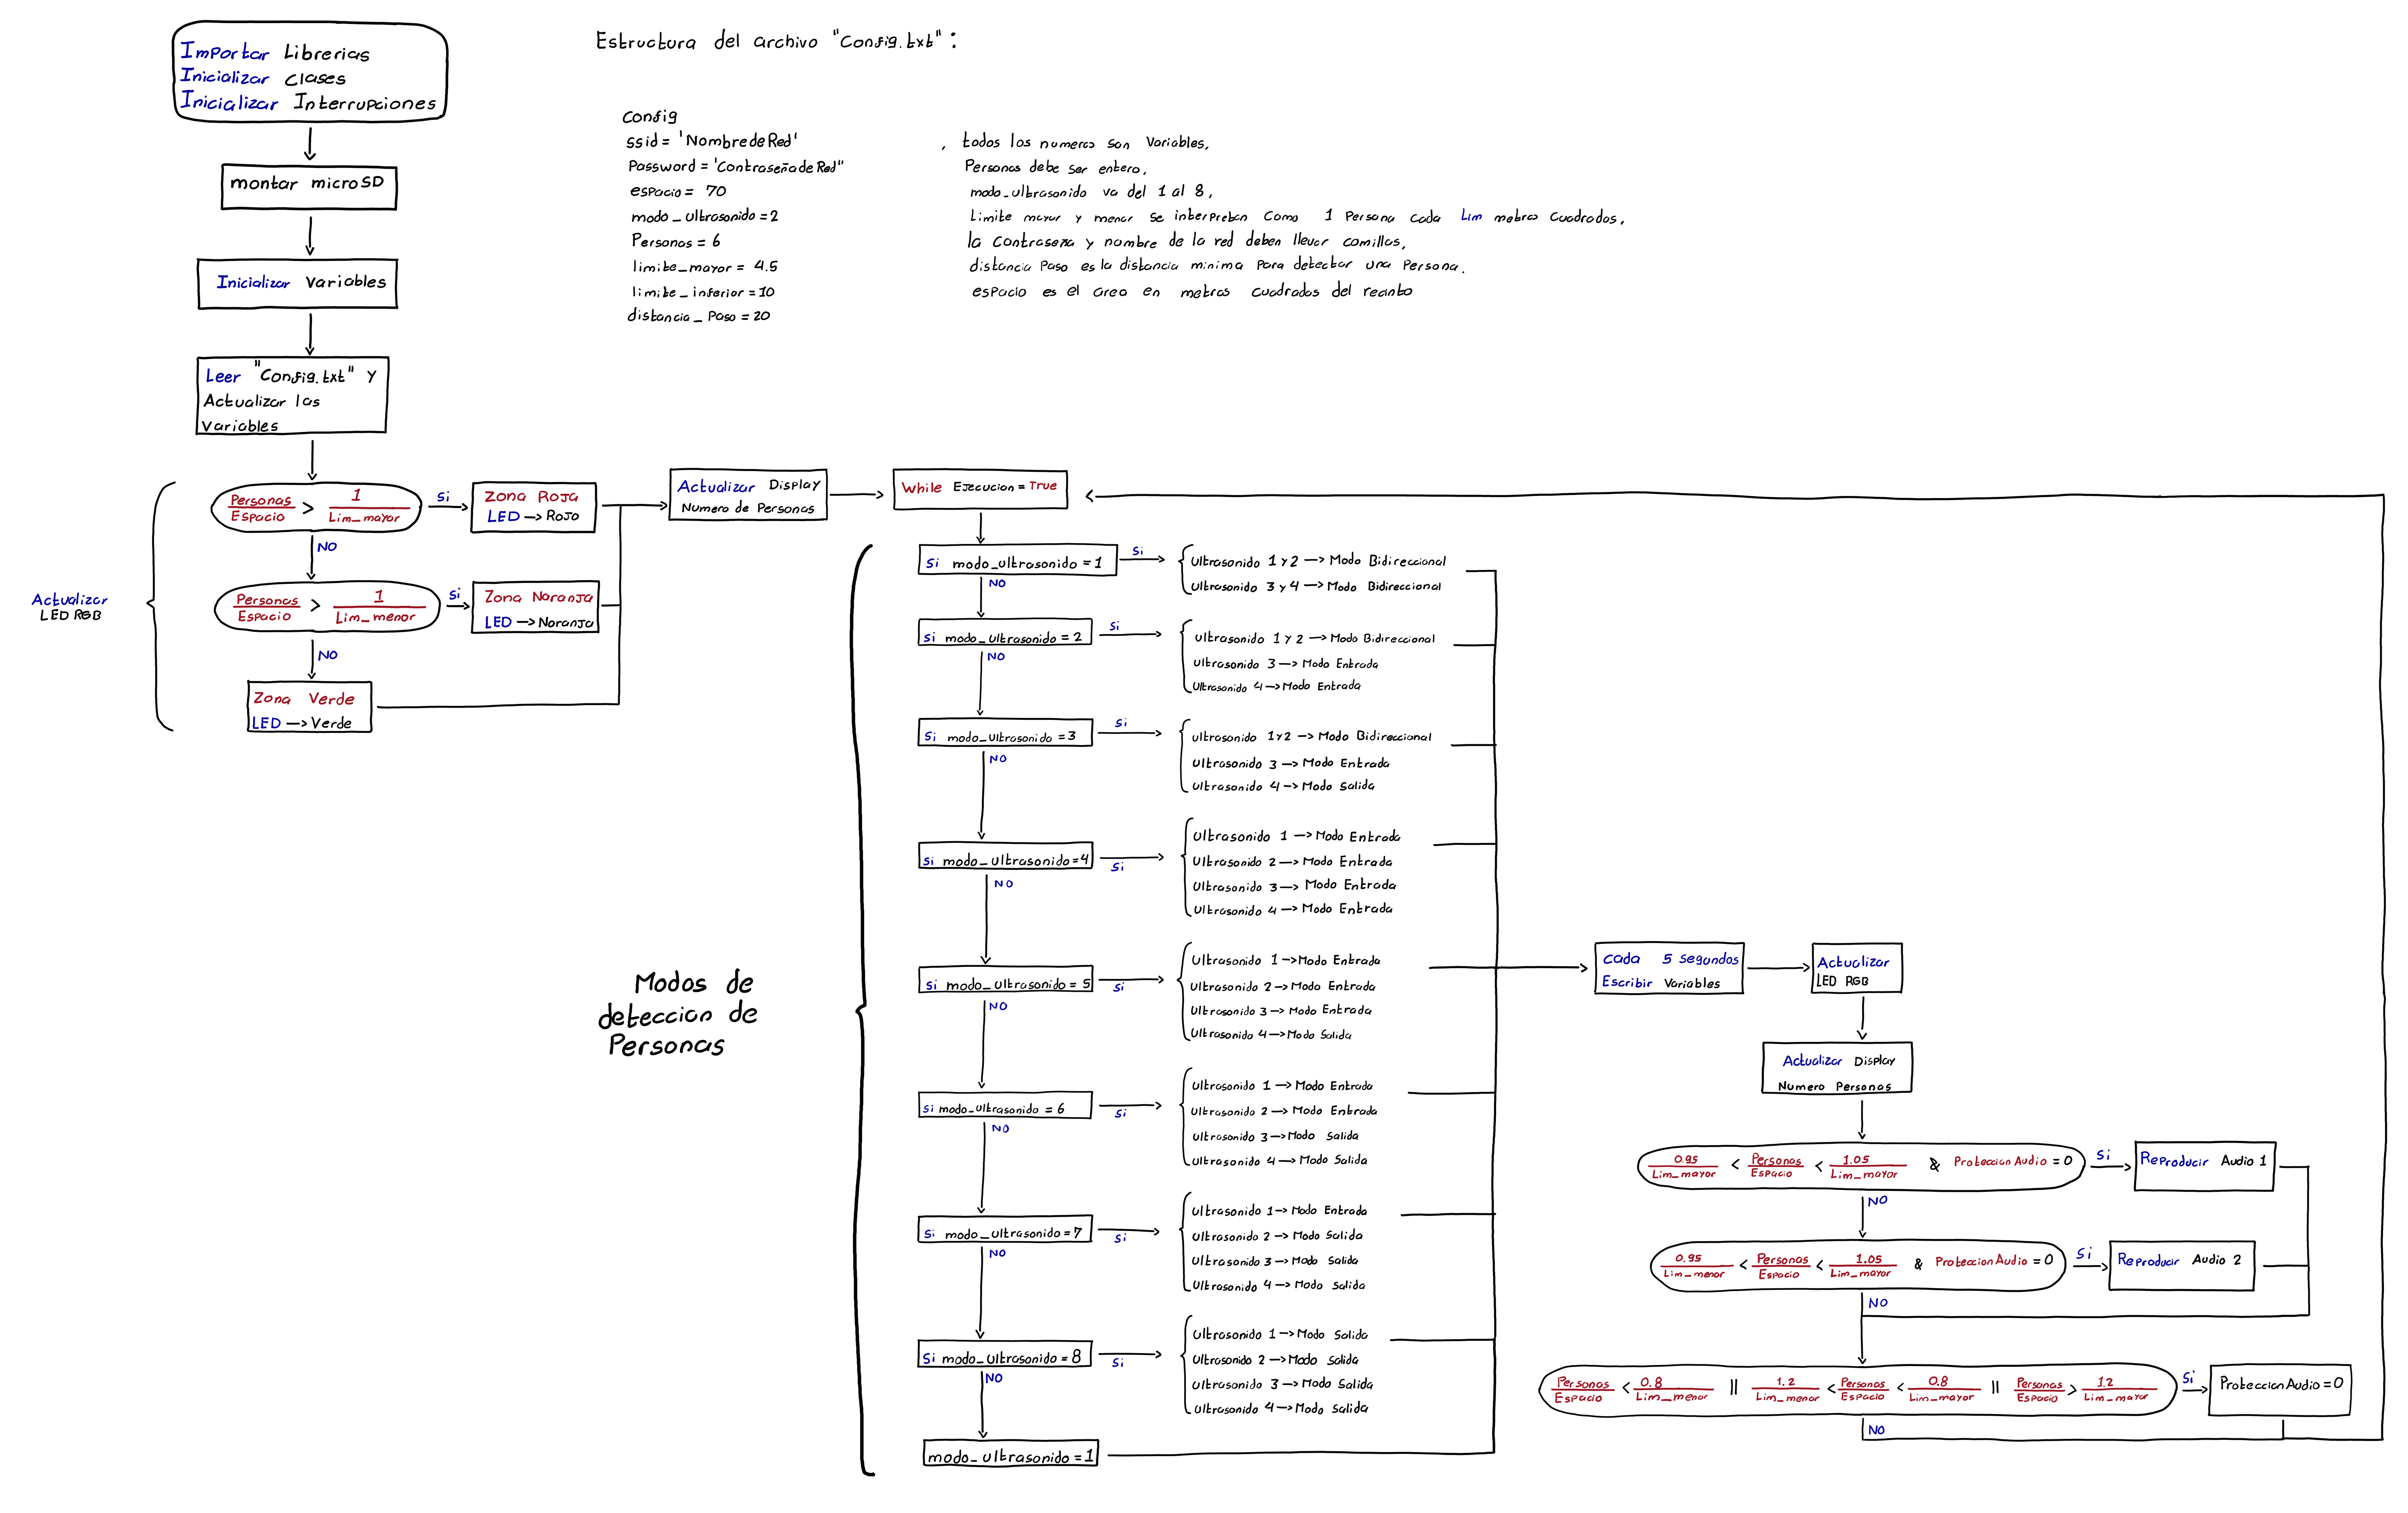 Importar Librerias
Inicializar Clases
Inicializar Interrupciones
montar microSD
Inicializar Variables
Leer "Config.txt" y
Actualizar las
Variables
Actualizar
LED RGB
Personas / Espacio > 1 / Lim_mayor
Si
Zona Roja
LED → Rojo
NO
Personas / Espacio > 1 / Lim_menor
Si
Zona Naranja
LED → Naranja
NO
Zona Verde
LED → Verde
Estructura del archivo "Config.txt":
Config
ssid = 'NombredeRed'
Password = 'ContraseñadeRed"
espacio = 70
modo_ultrasonido = 2
Personas = 6
limite_mayor = 4.5
limite_inferior = 10
distancia_Paso = 20
, todos los numeros son Variables,
Personas debe ser entero,
modo_ultrasonido va del 1 al 8,
Limite mayor y menor se interpretan Como 1 Persona cada Lim metros Cuadrados,
la Contraseña y nombre de la red deben llevar comillas,
distancia Paso es la distancia minima para detectar una Persona.
espacio es el area en metros cuadrados del recinto
Actualizar Display
Numero de Personas
While Ejecucion = True
Modos de
deteccion de
Personas
Si modo_ultrasonido = 1
Si
Ultrasonido 1 y 2 → Modo Bidireccional
Ultrasonido 3 y 4 → Modo Bidireccional
NO
Si modo_ultrasonido = 2
Si
Ultrasonido 1 y 2 → Modo Bidireccional
Ultrasonido 3 → Modo Entrada
Ultrasonido 4 → Modo Entrada
NO
Si modo_ultrasonido = 3
Si
Ultrasonido 1 y 2 → Modo Bidireccional
Ultrasonido 3 → Modo Entrada
Ultrasonido 4 → Modo Salida
NO
Si modo_ultrasonido = 4
Si
Ultrasonido 1 → Modo Entrada
Ultrasonido 2 → Modo Entrada
Ultrasonido 3 → Modo Entrada
Ultrasonido 4 → Modo Entrada
NO
Si modo_ultrasonido = 5
Si
Ultrasonido 1 → Modo Entrada
Ultrasonido 2 → Modo Entrada
Ultrasonido 3 → Modo Entrada
Ultrasonido 4 → Modo Salida
NO
Si modo_ultrasonido = 6
Si
Ultrasonido 1 → Modo Entrada
Ultrasonido 2 → Modo Entrada
Ultrasonido 3 → Modo Salida
Ultrasonido 4 → Modo Salida
NO
Si modo_ultrasonido = 7
Si
Ultrasonido 1 → Modo Entrada
Ultrasonido 2 → Modo Salida
Ultrasonido 3 → Modo Salida
Ultrasonido 4 → Modo Salida
NO
Si modo_ultrasonido = 8
Si
Ultrasonido 1 → Modo Salida
Ultrasonido 2 → Modo Salida
Ultrasonido 3 → Modo Salida
Ultrasonido 4 → Modo Salida
NO
modo_ultrasonido = 1
Cada 5 segundos
Escribir Variables
Actualizar
LED RGB
Actualizar Display
Numero Personas
0.95 / Lim_mayor < Personas / Espacio < 1.05 / Lim_mayor & Proteccion Audio = 0
Si
Reproducir Audio 1
NO
0.95 / Lim_menor < Personas / Espacio < 1.05 / Lim_mayor & Proteccion Audio = 0
Si
Reproducir Audio 2
NO
Personas / Espacio < 0.8 / Lim_menor || 1.2 / Lim_menor < Personas / Espacio < 0.8 / Lim_mayor || Personas / Espacio > 1.2 / Lim_mayor
Si
Proteccion Audio = 0
NO